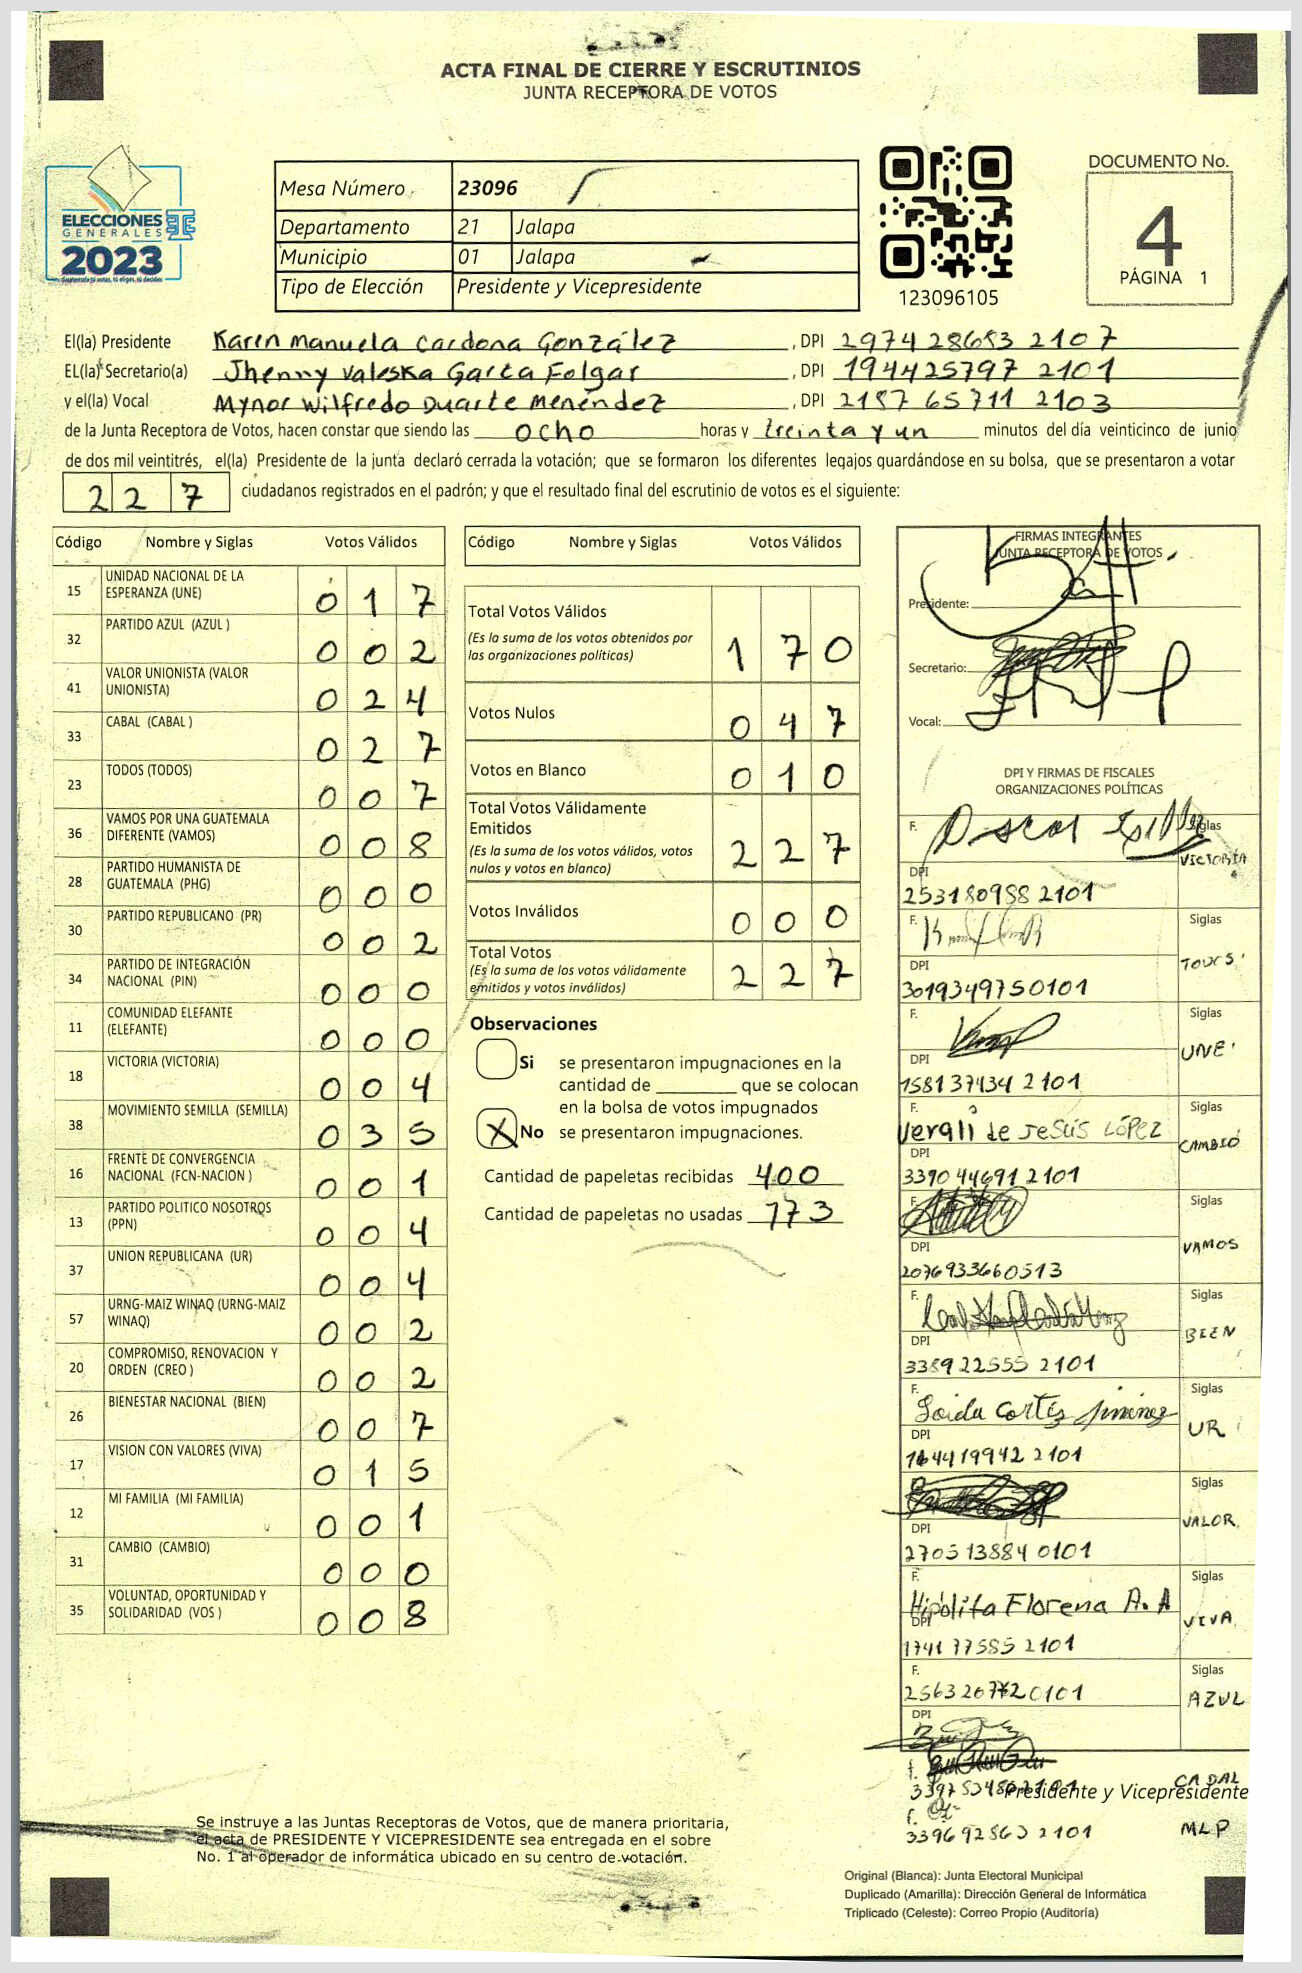 ACTA FINAL DE CIERRE Y ESCRUTINIOS
JUNTA RECEPTORA DE VOTOS
ELECCIONES
GENERALES
2023
Mesa Número 23096
Departamento 21 Jalapa
Municipio 01 Jalapa
Tipo de Elección Presidente y Vicepresidente
123096105
DOCUMENTO No.
4
PÁGINA 1
El(la) Presidente Karen Manuela Cardona González, DPI 2974 28683 2107
EL(la) Secretario(a) Jhenny Valeska Garta Folgar, DPI 194425797 2101
y el(la) Vocal Mynor Wilfredo Duarte Menéndez, DPI 2187 65711 2103
de la Junta Receptora de Votos, hacen constar que siendo las ocho horas y treinta y un minutos del día veinticinco de junio
de dos mil veintitrés, el(la) Presidente de la junta declaró cerrada la votación; que se formaron los diferentes legajos guardándose en su bolsa, que se presentaron a votar
227 ciudadanos registrados en el padrón; y que el resultado final del escrutinio de votos es el siguiente:
Código Nombre y Siglas Votos Válidos
15 UNIDAD NACIONAL DE LA
ESPERANZA (UNE) 017
32 PARTIDO AZUL (AZUL ) 002
41 VALOR UNIONISTA (VALOR
UNIONISTA) 024
33 CABAL (CABAL ) 027
23 TODOS (TODOS) 007
36 VAMOS POR UNA GUATEMALA
DIFERENTE (VAMOS) 008
28 PARTIDO HUMANISTA DE
GUATEMALA (PHG) 000
30 PARTIDO REPUBLICANO (PR) 002
34 PARTIDO DE INTEGRACIÓN
NACIONAL (PIN) 000
11 COMUNIDAD ELEFANTE
(ELEFANTE) 000
18 VICTORIA (VICTORIA) 004
38 MOVIMIENTO SEMILLA (SEMILLA) 035
16 FRENTE DE CONVERGENCIA
NACIONAL (FCN-NACION ) 001
13 PARTIDO POLITICO NOSOTROS
(PPN) 004
37 UNION REPUBLICANA (UR) 004
57 URNG-MAIZ WINAQ (URNG-MAIZ
WINAQ) 002
20 COMPROMISO, RENOVACION Y
ORDEN (CREO ) 002
26 BIENESTAR NACIONAL (BIEN) 007
17 VISION CON VALORES (VIVA) 015
12 MI FAMILIA (MI FAMILIA) 001
31 CAMBIO (CAMBIO) 000
35 VOLUNTAD, OPORTUNIDAD Y
SOLIDARIDAD (VOS ) 008
Código Nombre y Siglas Votos Válidos
Total Votos Válidos
(Es la suma de los votos obtenidos por
las organizaciones políticas) 170
Votos Nulos 047
Votos en Blanco 010
Total Votos Válidamente
Emitidos
(Es la suma de los votos válidos, votos
nulos y votos en blanco) 227
Votos Inválidos 000
Total Votos
(Es la suma de los votos válidamente
emitidos y votos inválidos) 227
Observaciones
Si se presentaron impugnaciones en la
cantidad de ________ que se colocan
en la bolsa de votos impugnados
X No se presentaron impugnaciones.
Cantidad de papeletas recibidas 400
Cantidad de papeletas no usadas 173
FIRMAS INTEGRANTES
JUNTA RECEPTORA DE VOTOS
Presidente:
Secretario:
Vocal:
DPI Y FIRMAS DE FISCALES
ORGANIZACIONES POLÍTICAS
F. Oscar Siglas
VICTORIA
DPI
253180988 2101
F. Siglas
DPI
3019349750101
F. Siglas
UNE
DPI
158137434 2101
F. Siglas
Verali de Jesús López
CAMBIO
DPI
3390 44691 2101
F. Siglas
VAMOS
DPI
2076933660513
F. Siglas
BIEN
DPI
338922555 2101
F. Siglas
Loida Cortés Jiminez
UR
DPI
164419942 2101
Siglas
VALOR
DPI
2705 13884 0101
F. Siglas
Hipólita Florena A. A
VIVA
DPI
1741 77585 2101
F. Siglas
AZUL
DPI
f.
CABAL
Presidente y Vicepresidente
f.
339692863 2101
MLP
Se instruye a las Juntas Receptoras de Votos, que de manera prioritaria,
el acta de PRESIDENTE Y VICEPRESIDENTE sea entregada en el sobre
No. 1 al operador de informática ubicado en su centro de votación.
Original (Blanca): Junta Electoral Municipal
Duplicado (Amarilla): Dirección General de Informática
Triplicado (Celeste): Correo Propio (Auditoría)